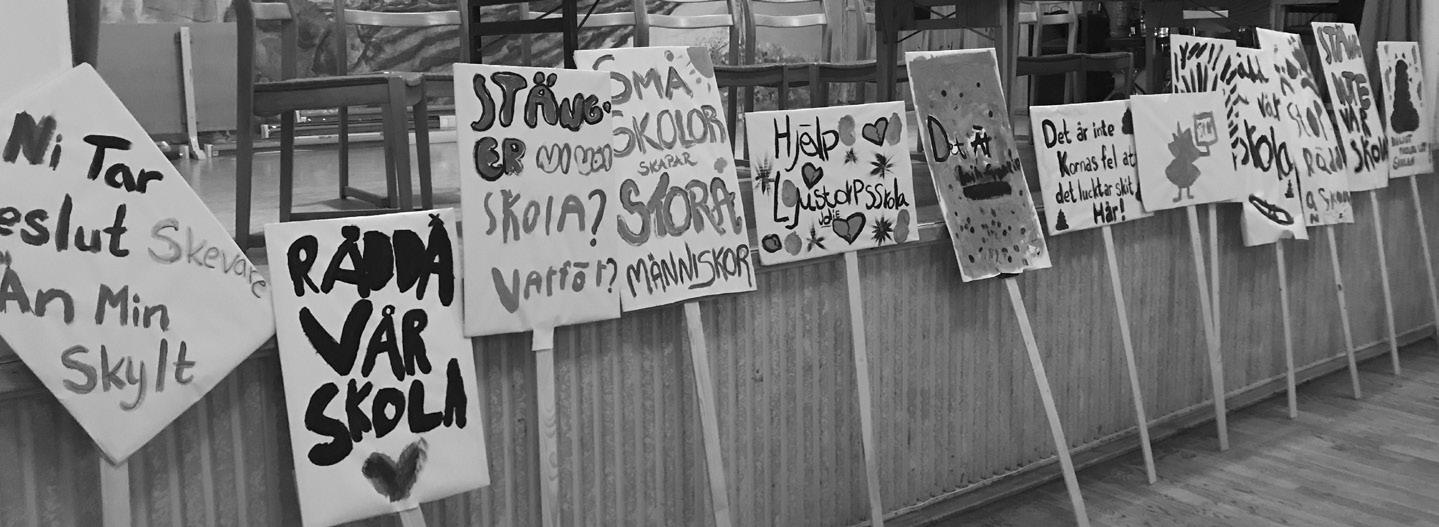 Ni Tar
eslut Skevare
Än Min
Skylt
RÄDDA
VÅR
SKOLA
STÄNG-
ER NI
SKOLA?
Varför?
SMÅ
SKOLOR
SKAPAR
STORA
MÄNNISKOR
Hjälp
Ljustorps skola
Det Är
Det är inte
Kornas fel at
det lucktar skit
Här!
vår
skola
STOP
RÄDDA
STÄNG
INTE
VÅR
SKOLA